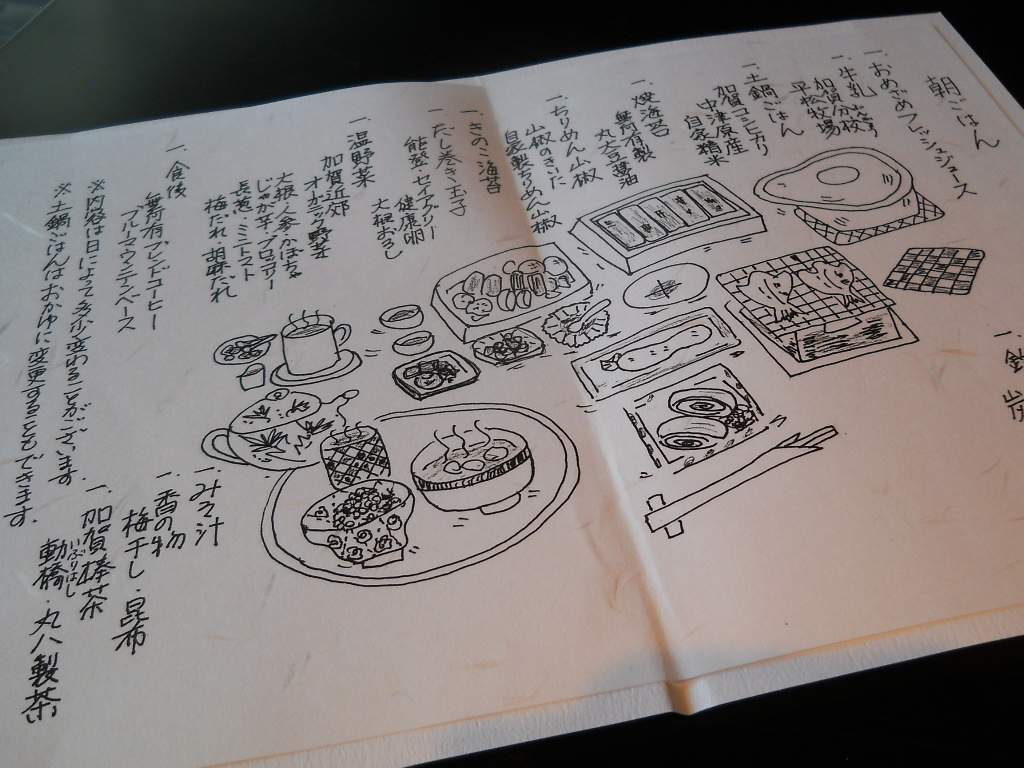 朝ごはん
一、おめざめフレッシュジュース
一、牛乳
加賀分校
平松牧場
一、土鍋ごはん
加賀コシヒカリ
中津原産
自家精米
一、焼海苔
無有製
丸大豆醤油
一、ちりめん山椒
山椒のきいた
自家製ちりめん山椒
一、きのこ海苔
一、だし巻き玉子
能登・セイアグリー
健康卵
大根おろし
一、温野菜
加賀近郊
オーガニック野菜
大根・人参・かぼちゃ
じゃが芋・ブロッコリー
長葱・ミニトマト
梅だれ・胡麻だれ
一、食後
無何有ブレンドコーヒー
ブルーマウンテンベース
※内容は日によって多少変わることがございます。
※土鍋ごはんはおかゆに変更することもできます。
一、みそ汁
一、香の物
梅干し・昆布
一、加賀棒茶
動橋・丸八製茶
いぶりはし